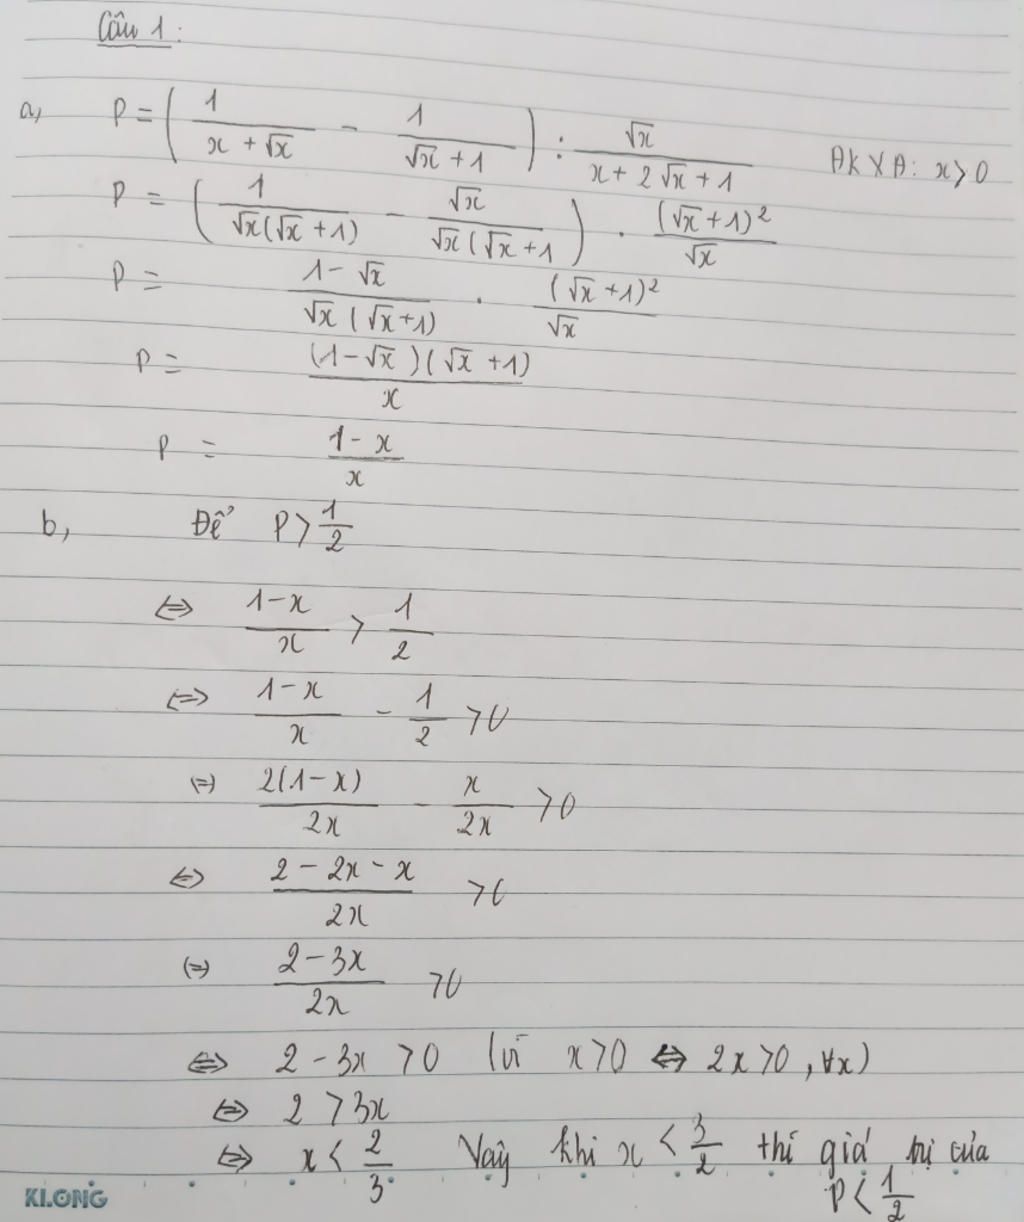 Câu 1:
a, P = ( 1/(x + √x) - 1/(√x + 1) ) : √x/(x + 2√x + 1) ĐKXĐ: x > 0
P = ( 1/(√x(√x + 1)) - √x/(√x(√x + 1) ) . (√x + 1)²/√x
P = (1 - √x)/(√x(√x + 1)) . (√x + 1)²/√x
P = (1 - √x)(√x + 1)/x
P = (1 - x)/x
b, Để P > 1/2
⇔ (1 - x)/x > 1/2
⇔ (1 - x)/x - 1/2 > 0
⇔ 2(1 - x)/2x - x/2x > 0
⇔ (2 - 2x - x)/2x > 0
⇔ (2 - 3x)/2x > 0
⇔ 2 - 3x > 0 (vì x > 0 ⇔ 2x > 0, ∀x)
⇔ 2 > 3x
⇔ x < 2/3 Vậy khi x < 3/2 thì giá trị của
P < 1/2
KLONG